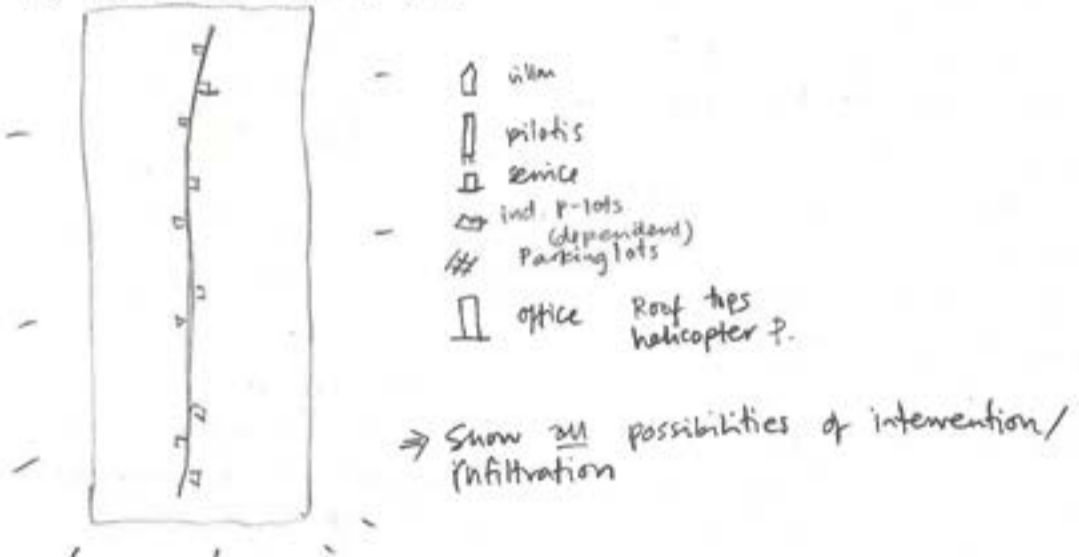 villa
pilotis
service
ind. P-lots
(dependend)
Parking lots
office Roof tops
helicopter P.
⇒ Show all possibilities of intervention/
infiltration